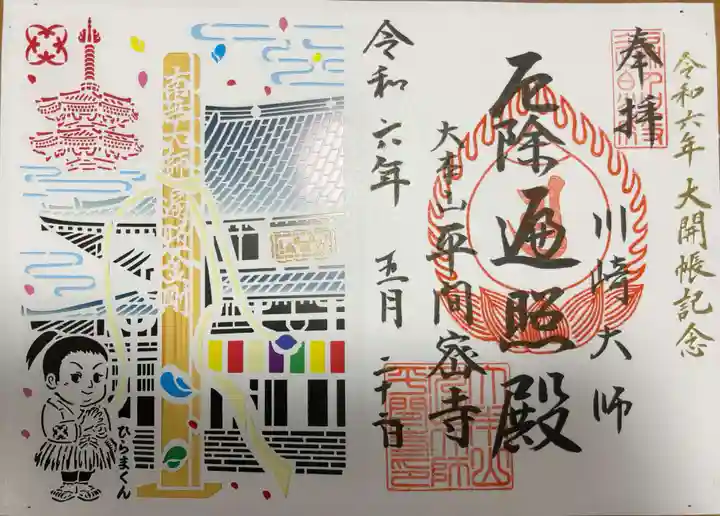 令和六年 大開帳記念
奉拝
川崎大師
厄除遍照殿
大本山平間寺
令和六年 五月二十日
南無大師遍照金剛
ひらまくん